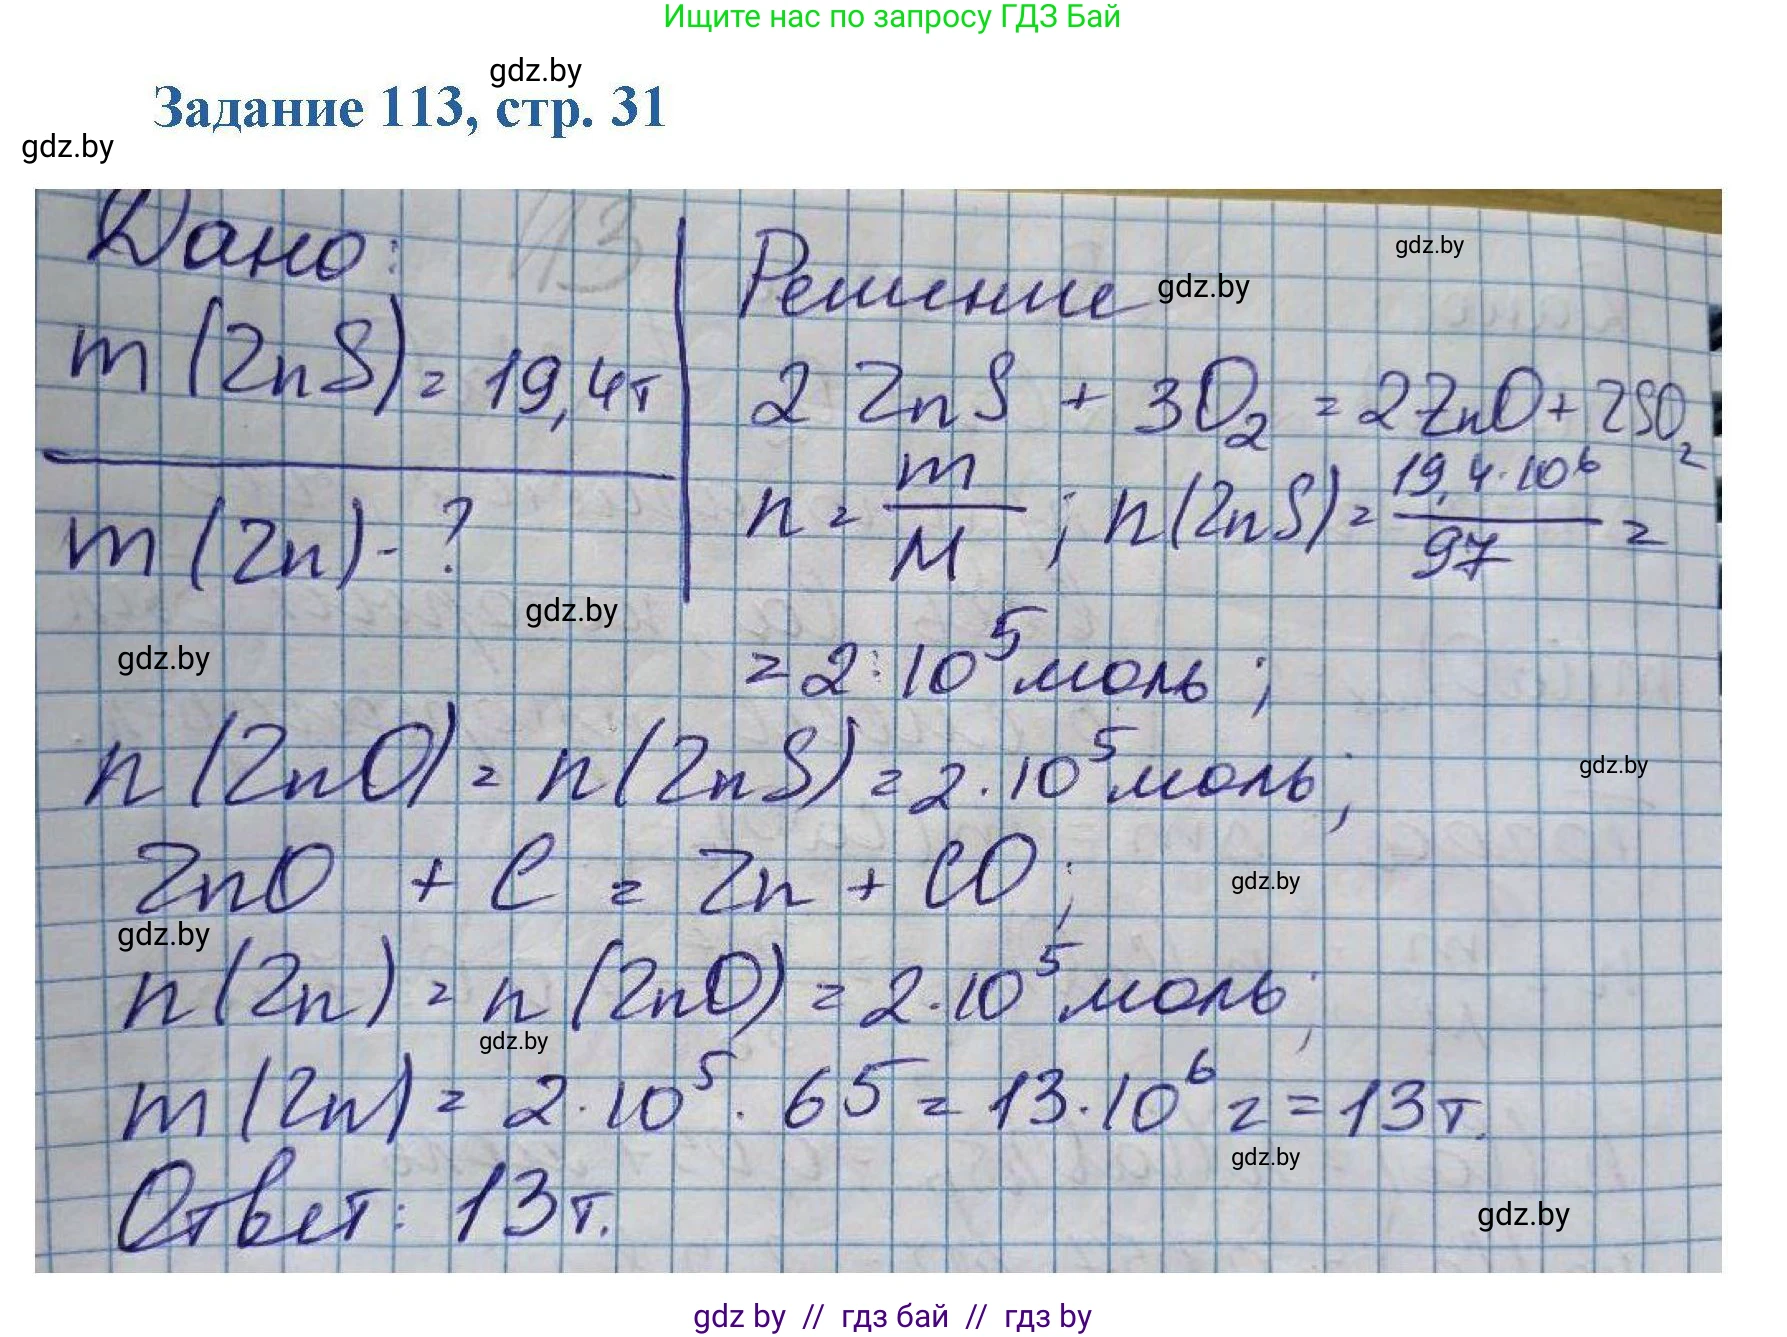 Ищите нас по запросу ГДЗ Бай
gdz.by
Задание 113, стр. 31
gdz.by
113
Дано:
m (ZnS) = 19,4т
m (Zn) - ?
Решение
gdz.by
gdz.by
2 ZnS + 3O₂ = 2ZnO + 2SO₂
n = m/M ; n(ZnS) = 19,4·10⁶/97 =
gdz.by
gdz.by
= 2·10⁵ моль ;
n (ZnO) = n (ZnS) = 2·10⁵ моль;
gdz.by
ZnO + C = Zn + CO;
gdz.by
gdz.by
n (Zn) = n (ZnO) = 2·10⁵ моль;
gdz.by
m (Zn) = 2·10⁵ · 65 = 13·10⁶ г = 13 т.
gdz.by
Ответ: 13 т.
gdz.by
gdz by // гдз бай // гдз by